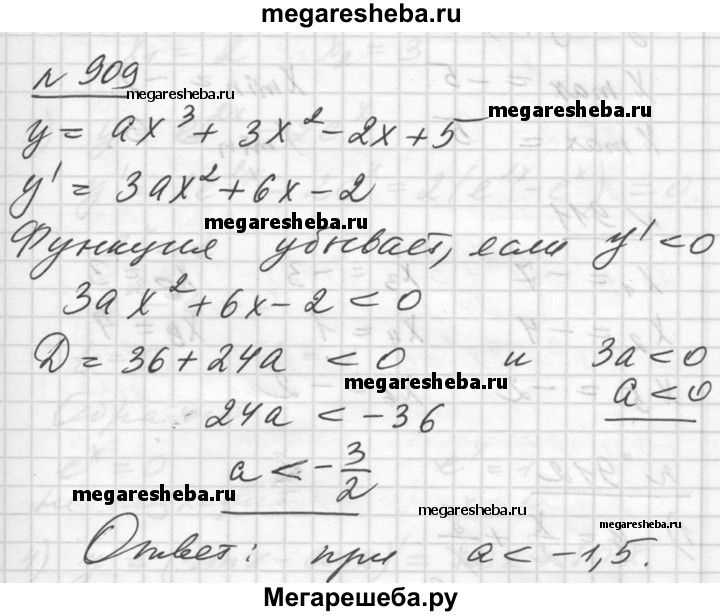 megaresheba.ru
№ 909
megaresheba.ru
y = ax³ + 3x² - 2x + 5
megaresheba.ru
y' = 3ax² + 6x - 2
megaresheba.ru
Функция убывает, если y' < 0
3ax² + 6x - 2 < 0
Д = 36 + 24a < 0 и 3a < 0
megaresheba.ru
a < 0
24a < -36
a < -3/2
megaresheba.ru
megaresheba.ru
megaresheba.ru
Ответ: при a < -1,5.
Мегарешеба.ру